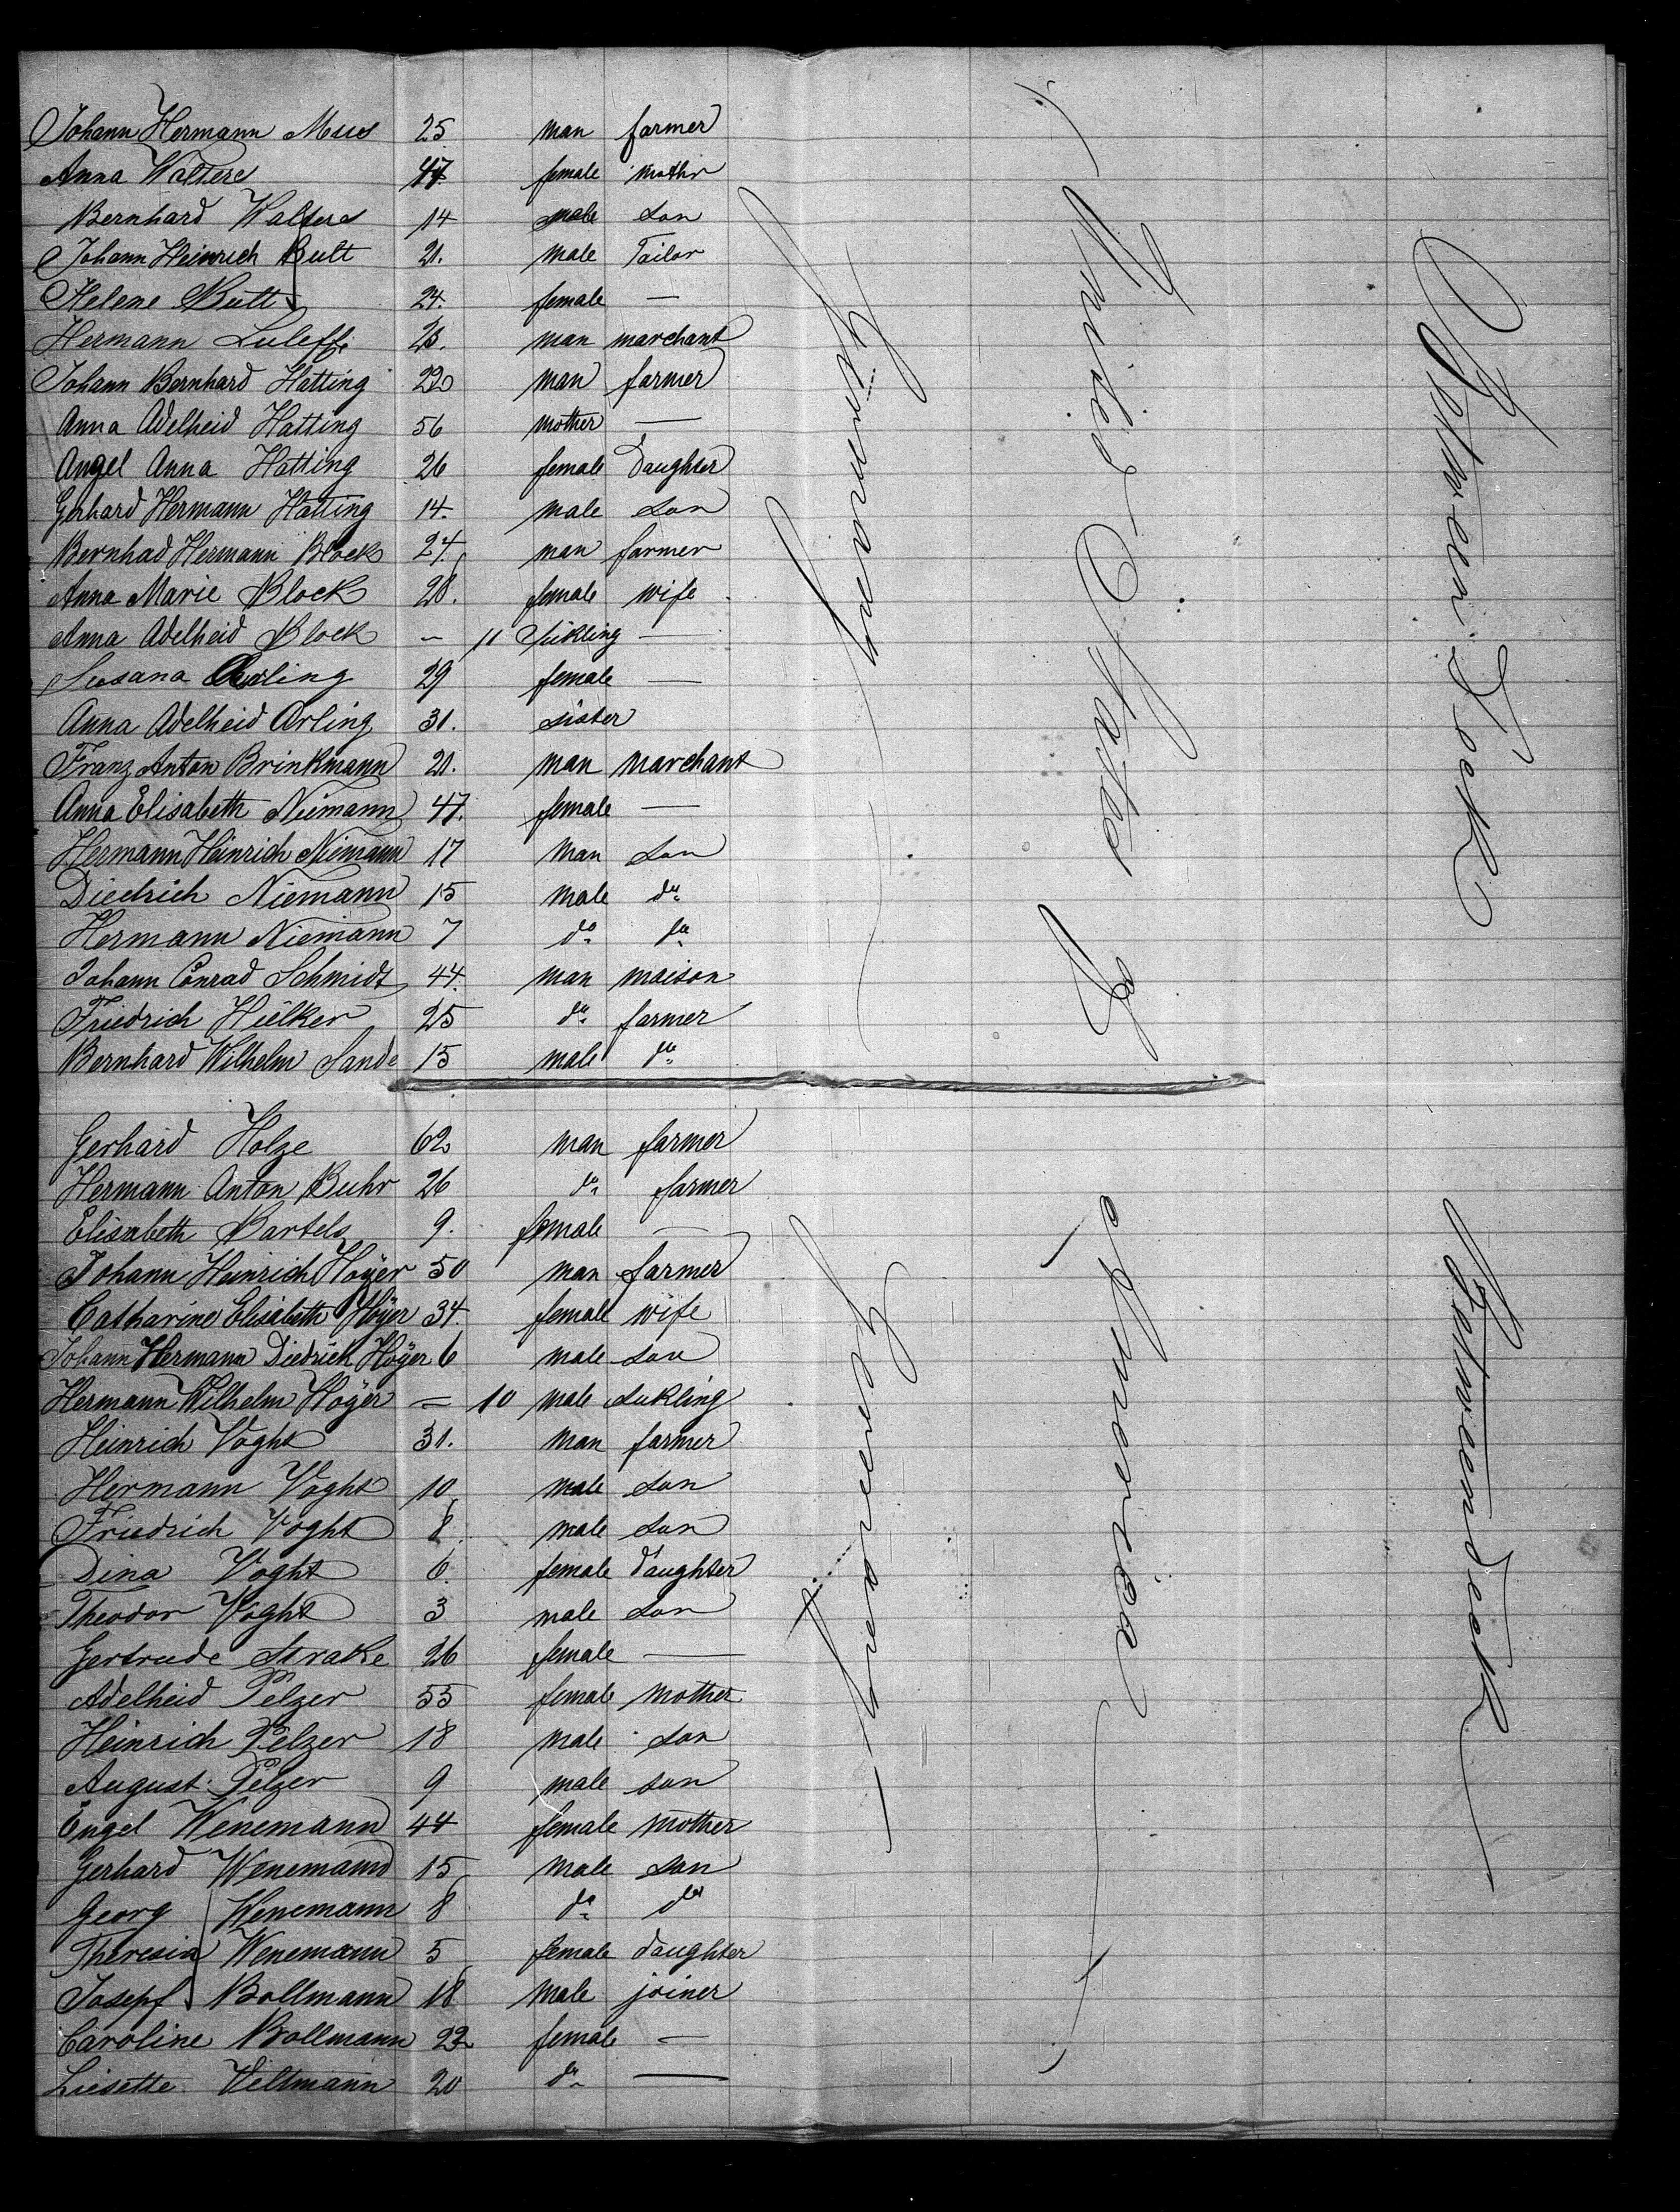 Johann Hermann Muss 25 man farmer
Anna Walters 47 female mothr
Bernhard Walters 14 male son
Johann Heinrich Bult 21. male Tailor
Helene Bult 24. female —
Hermann man marchant
Johann Bernhard Hatting 22 man farmer
Anna Adelheid Hatting 56 mother —
Angel Anna Hatting 26 female Daughter
Gerhard Hermann Hatting 14. male son
Bernhad Hermann Block 24. man farmer
Anna Marie Block 28. female wife
Anna Adelheid Block — 11 Sükling —
Susana Arling 29 female —
Anna Adelheid Arling 31. sister
Franz Anton Brinkmann 21. man marchant
Anna Elisabeth Niemann 47. female —
Hermann Heinrich Niemann 17 man son
Diedrich Niemann 15 male do
Hermann Niemann 7 do do
Johann Conrad Schmidt 44. man maison
Friedrich Hülker 25 do farmer
Bernhard Wilhelm Sande 15 male do
Germany
United States
Between Deck
Gerhard Holze 62 man farmer
Hermann Anton Buhr 26 do farmer
Elisabeth Bartels 9. female —
Johann Heinrich Höyer 50 man farmer
Catharine Elisabeth Höyer 34. female wife
Johann Hermann Diedrich Höyer 6 male son
Hermann Wilhelm Höyer — 10 male sukling
Heinrich Voght 31. man farmer
Hermann Voght 10 male son
Friedrich Voght 8 male son
Dina Voght 6 female daughter
Theodor Voght 3 male son
Gertrude Strake 26 female —
Adelheid Pelzer 55 female mother
Heinrich Pelzer 18 male son
August Pelzer 9 male son
Engel Wenemann 44 female mother
Gerhard Wenemann 15 male son
Georg Wenemann 8 do do
Theresia Wenemann 5 female daughter
Josepf Bollmann 18 male joiner
Caroline Bollmann 22 female —
Liesette Veltmann 20 do —
Germany
of America
Between Deck